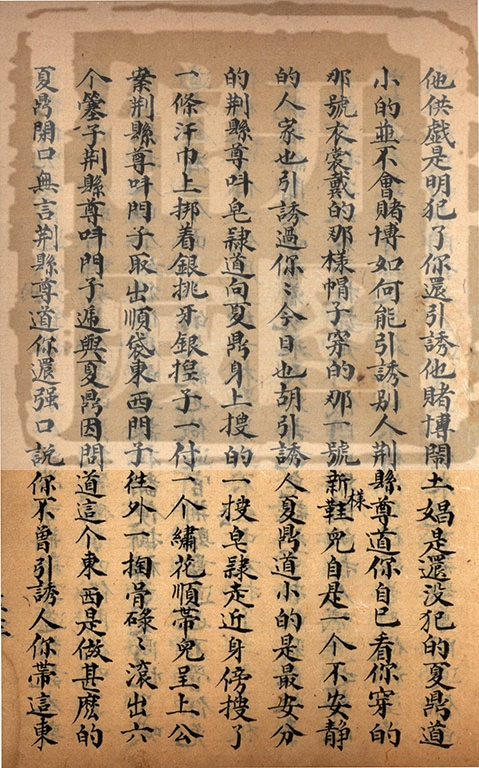 他供戲是明犯了你還引誘他賭博鬧土娼是還没犯的夏鼎道
小的並不會賭博如何能引誘别人荆縣尊道你自已看你穿的
那號衣裳戴的那樣帽子穿的那一號新鞋兒自是一个不安静
樣
的人家也引誘過你〻今日也胡引誘人夏鼎道小的是最安分
的荆縣尊呌皂隸道向夏鼎身上搜的一搜皂隸走近身傍搜了
一條汗巾上掷着銀挑牙銀揑子一付一个繡花順帶兒呈上公
案荆縣尊呌門子取出順袋東西門子徃外一掏骨碌〻滚出六
个簺子荆縣尊呌門子遞與夏鼎因問道這个東西是做甚麽的
夏鼎閉口無言荆縣尊道你還强口説你不曾引誘人你帶這東